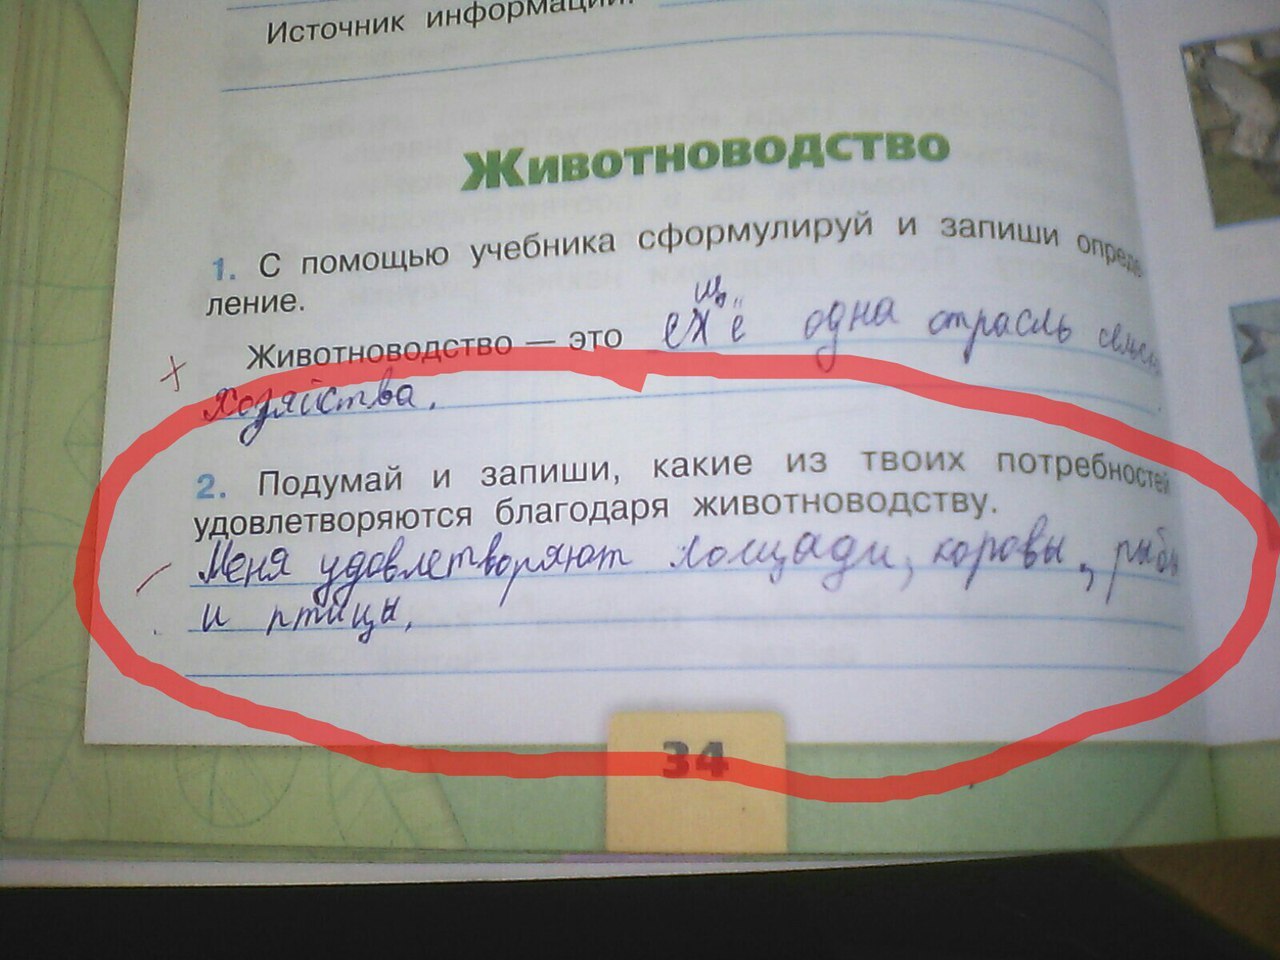 Источник информации:
Животноводство
1. С помощью учебника сформулируй и запиши опреде-
ление.
щ
Животноводство — это ехё одна отрасль сельск
хозяйства.
2. Подумай и запиши, какие из твоих потребностей
удовлетворяются благодаря животноводству.
Меня удовлетворяют лощади, коровы, рыбы
и птицы.
34